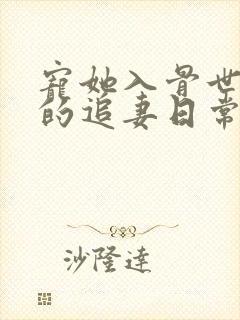 寵她入骨世
的追妻日常
沙隆達